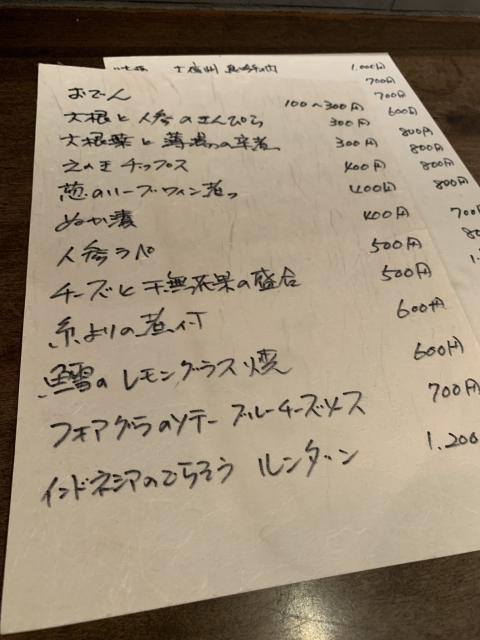 1,000円
700円
700円
600円
800円
800円
800円
800円
700
おでん 100〜300円
大根と人参のきんぴら 300円
大根葉と薄揚の辛煮 300円
えのきチップス 400円
葱のハーブワイン煮 400円
ぬか漬 400円
人参ラペ 500円
チーズと干無花果の盛合 500円
糸よりの煮付 600円
鱈のレモングラス焼 600円
フォアグラのソテー ブルーチーズソース 700円
インドネシアのごちそう ルンダン 1,200